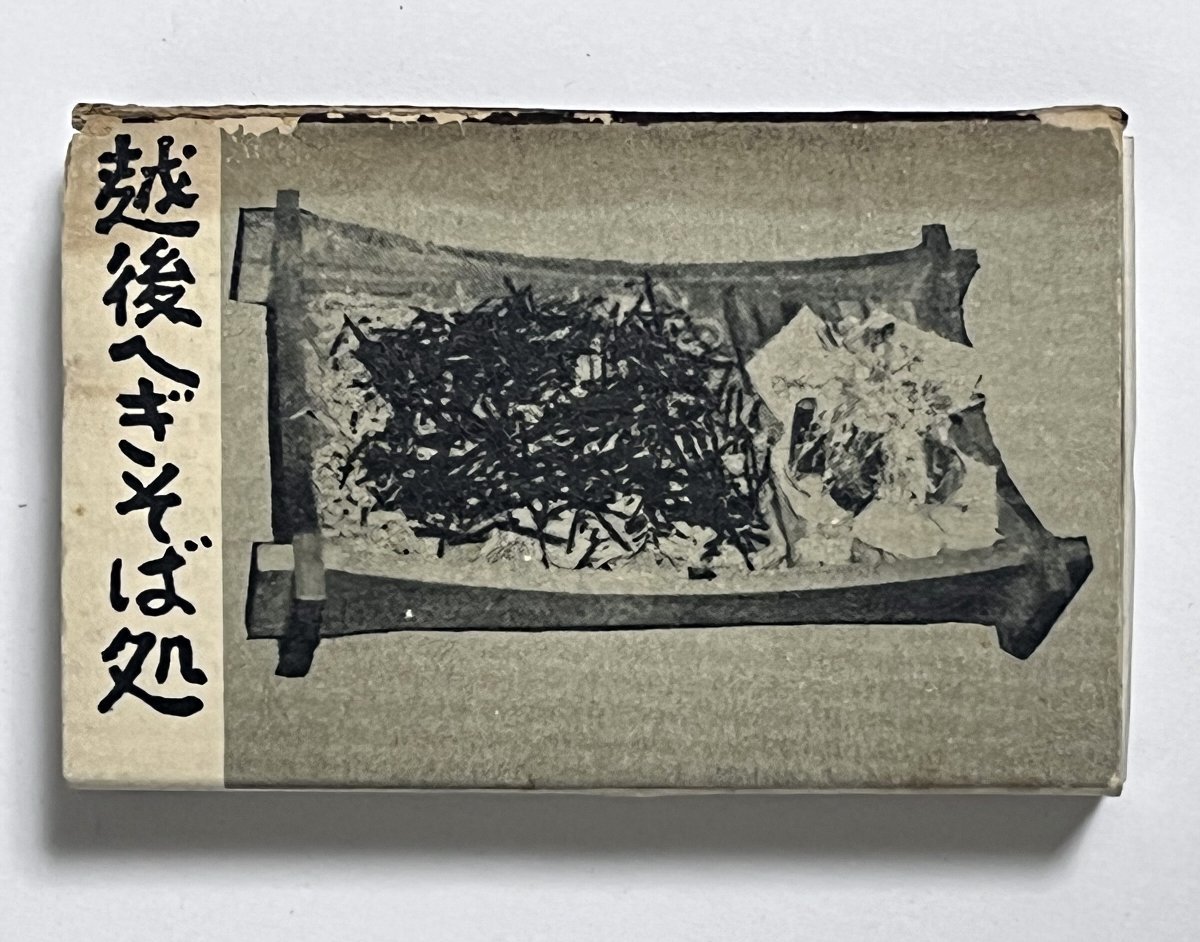 越後へぎそば処